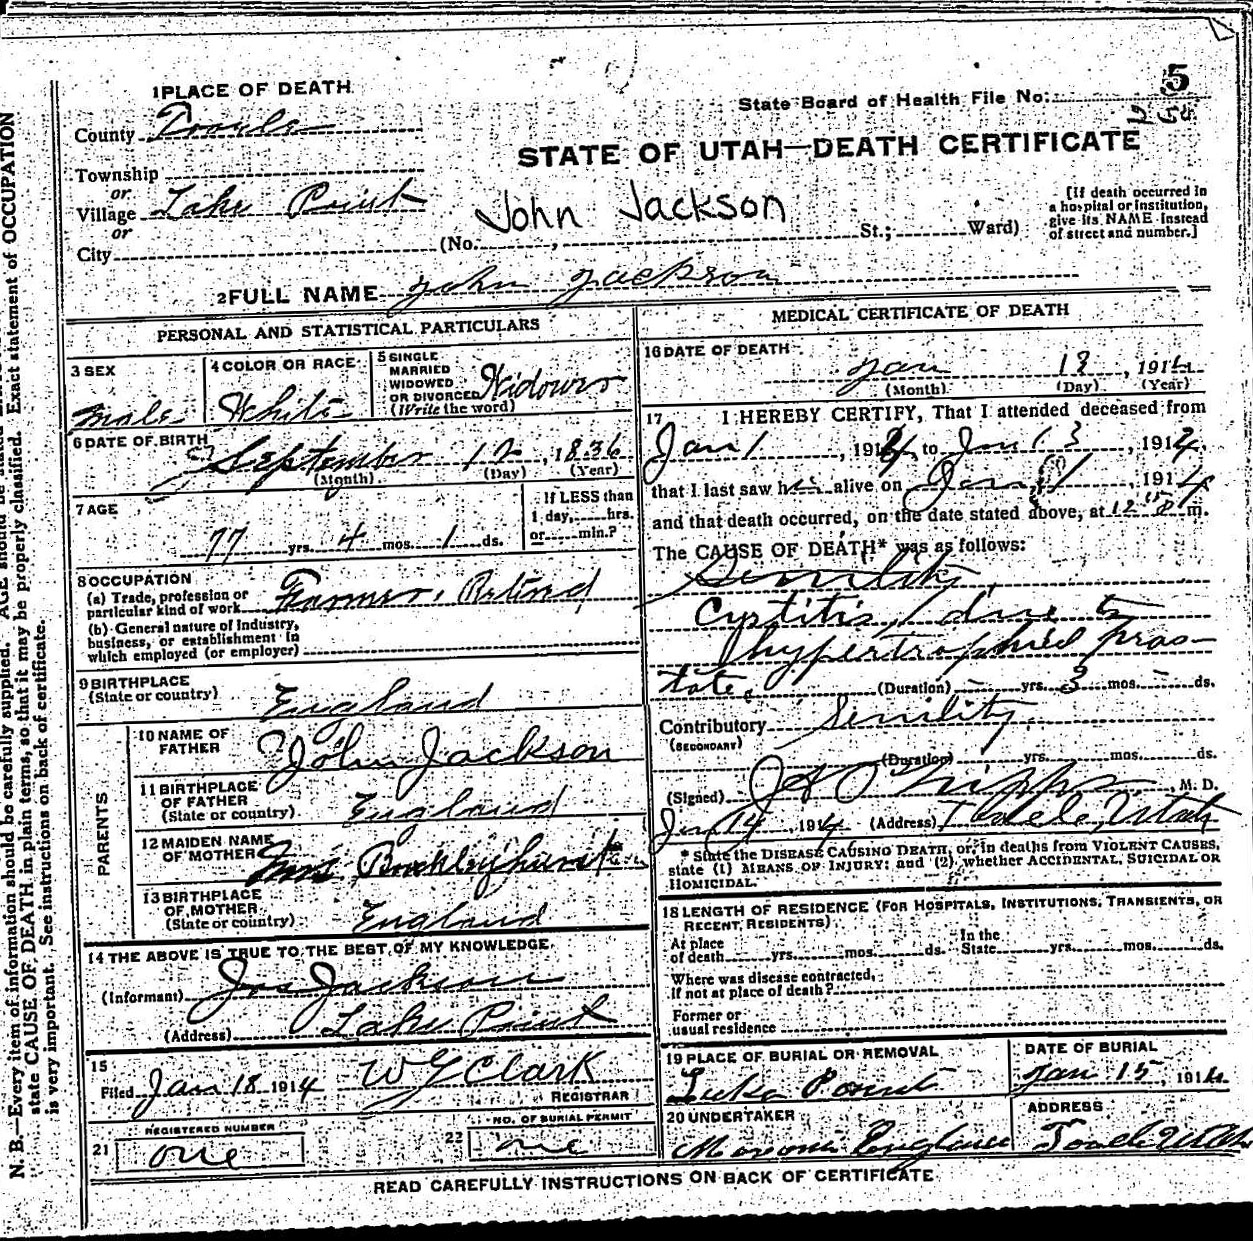 1 PLACE OF DEATH
County Tooele
Township
or
Village Lake Point
or
City
(No. , St.; Ward)
State Board of Health File No.
5
STATE OF UTAH—DEATH CERTIFICATE
John Jackson
[If death occurred in
a hospital or institution,
give its NAME instead
of street and number.]
2 FULL NAME John Jackson
PERSONAL AND STATISTICAL PARTICULARS
3 SEX
Male
4 COLOR OR RACE
White
5 SINGLE
MARRIED
WIDOWED
OR DIVORCED
(Write the word)
Widower
6 DATE OF BIRTH
September 12, 1836
(Month) (Day) (Year)
7 AGE
77 yrs. 4 mos. 1 ds.
If LESS than
1 day, hrs.
or min.?
8 OCCUPATION
(a) Trade, profession or
particular kind of work Farmer, Retired
(b) General nature of industry,
business, or establishment in
which employed (or employer)
9 BIRTHPLACE
(State or country) England
10 NAME OF
FATHER John Jackson
11 BIRTHPLACE
OF FATHER
(State or country) England
12 MAIDEN NAME
OF MOTHER
13 BIRTHPLACE
OF MOTHER
(State or country) England
PARENTS
14 THE ABOVE IS TRUE TO THE BEST OF MY KNOWLEDGE.
(Informant) Jos Jackson
(Address) Lake Point
15
Filed Jan 18 1914 W G Clark
REGISTRAR
REGISTERED NUMBER
21 one
NO. OF BURIAL PERMIT
22 one
MEDICAL CERTIFICATE OF DEATH
16 DATE OF DEATH
Jan 13, 1914
(Month) (Day) (Year)
17 I HEREBY CERTIFY, That I attended deceased from
Jan 1, 1914, to Jan 13, 1914,
that I last saw him alive on Jan 1, 1914,
and that death occurred, on the date stated above, at 12 m.
The CAUSE OF DEATH* was as follows:
Senility,
Cystitis, due to
hypertrophied pros-
tate. (Duration) yrs. 3 mos. ds.
Contributory Senility
(SECONDARY)
(Duration) yrs. mos. ds.
(Signed) M. D.
Jan 14, 1914 (Address) Tooele, Utah
* State the DISEASE CAUSING DEATH, or, in deaths from VIOLENT CAUSES,
state (1) MEANS OF INJURY; and (2) whether ACCIDENTAL, SUICIDAL OR
HOMICIDAL.
18 LENGTH OF RESIDENCE (FOR HOSPITALS, INSTITUTIONS, TRANSIENTS, OR
RECENT RESIDENTS)
At place
of death yrs. mos. ds.
In the
State yrs. mos. ds.
Where was disease contracted,
if not at place of death?
Former or
usual residence
19 PLACE OF BURIAL OR REMOVAL
Lake Point
DATE OF BURIAL
Jan 15, 1914
20 UNDERTAKER
ADDRESS
Tooele Utah
READ CAREFULLY INSTRUCTIONS ON BACK OF CERTIFICATE
N. B.—Every item of information should be carefully supplied. AGE should be stated
state CAUSE OF DEATH in plain terms, so that it may be properly classified. Exact statement of OCCUPATION
is very important. See instructions on back of certificate.